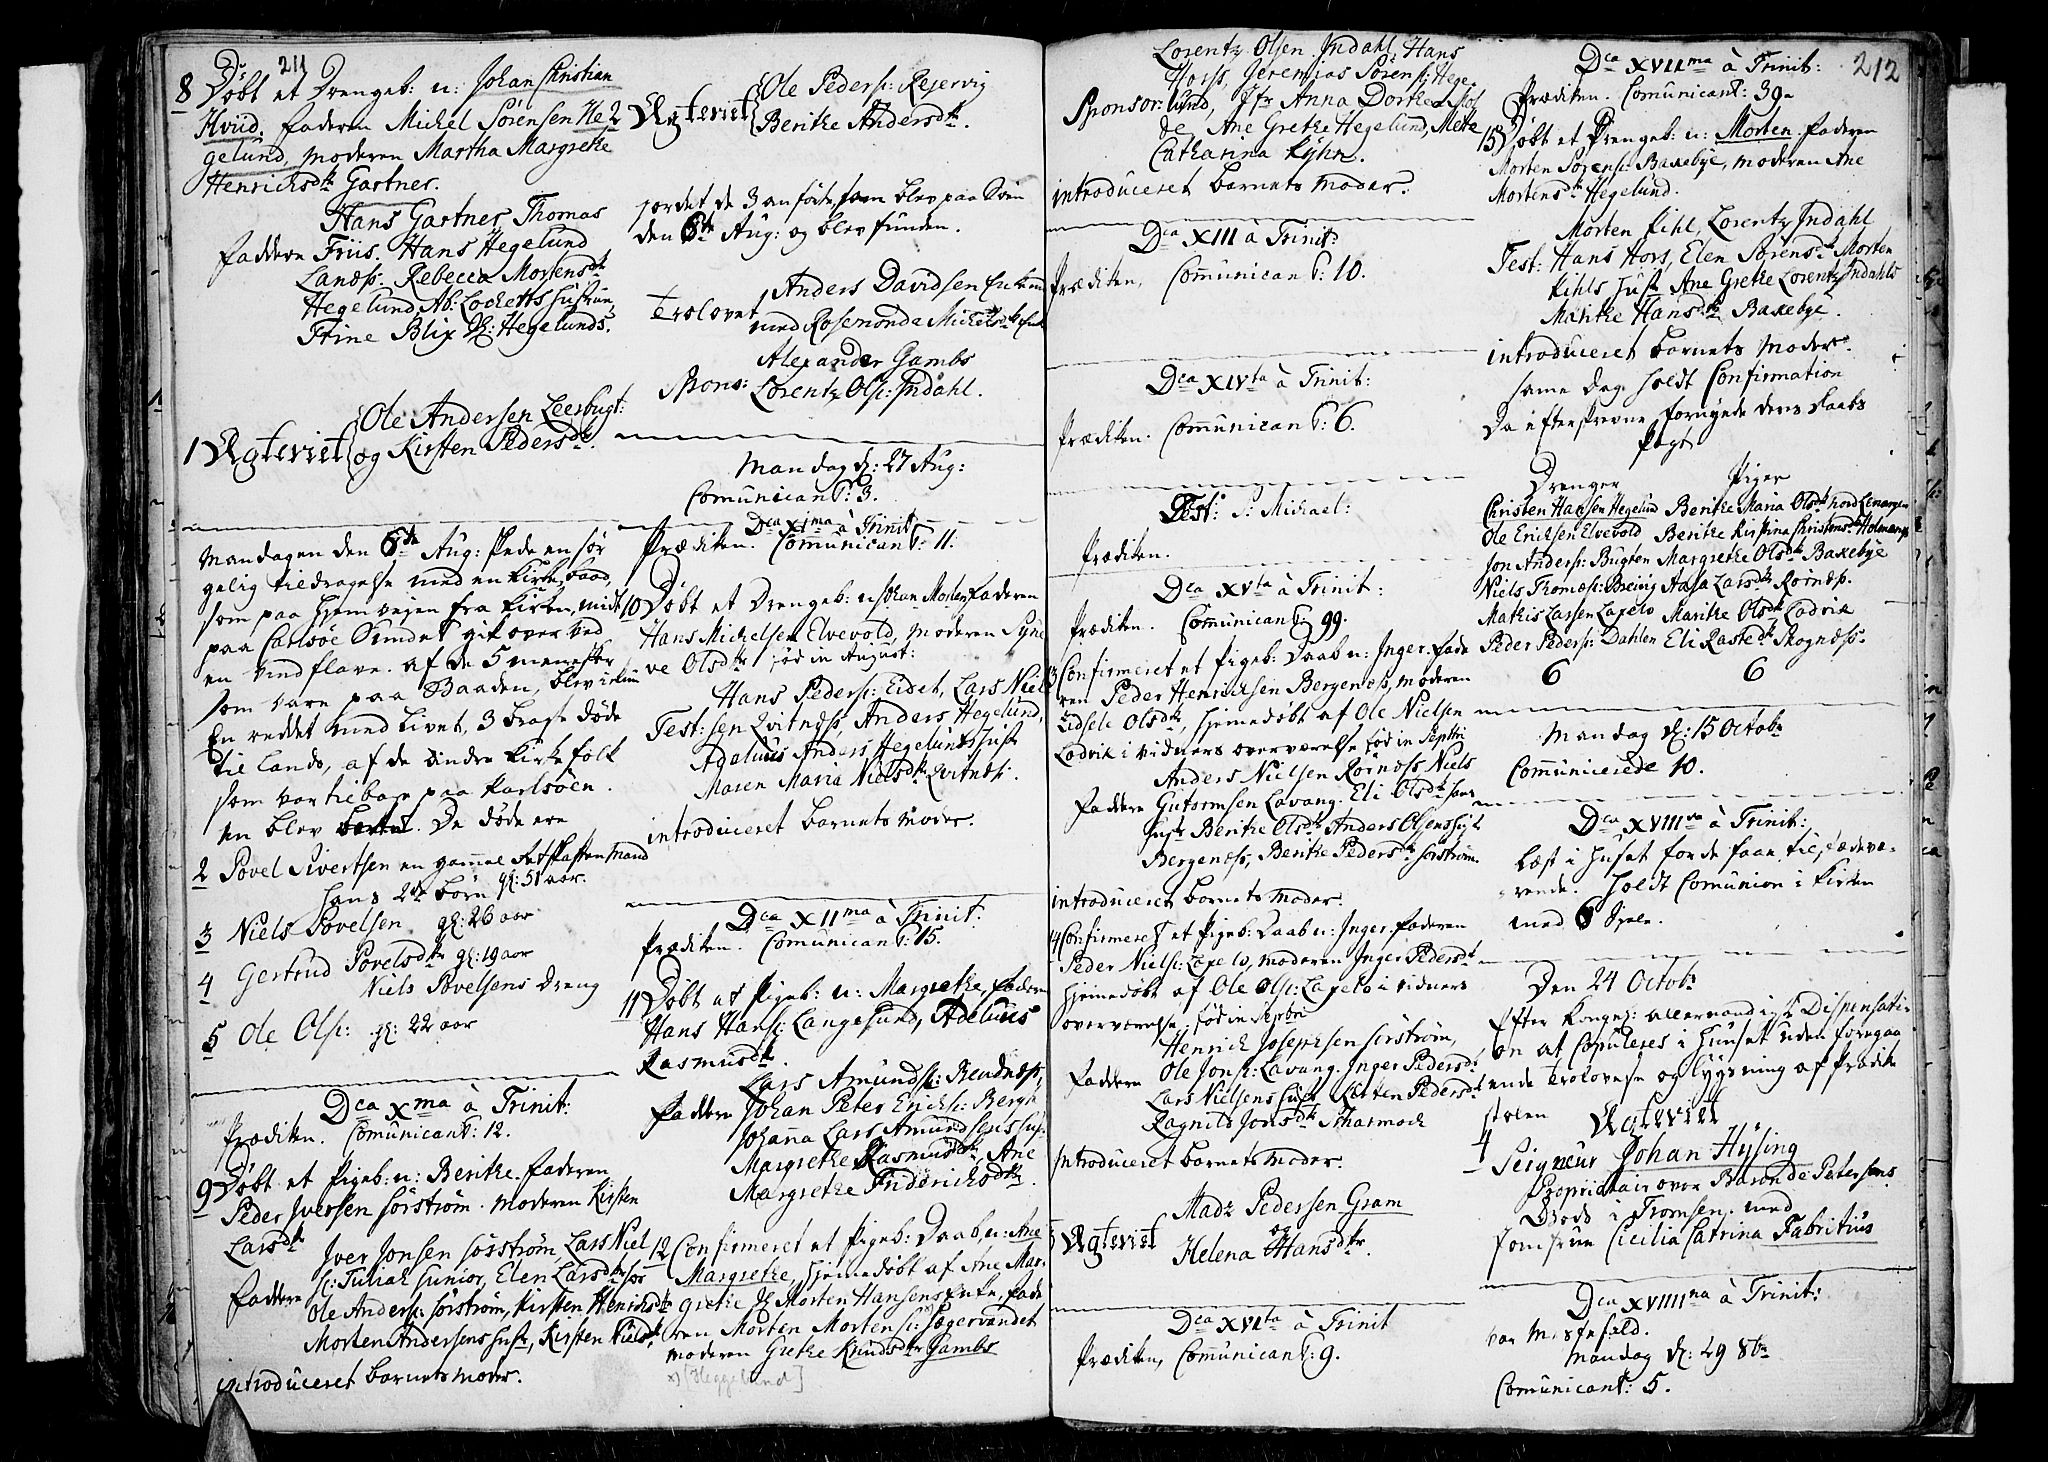 211
8 Døbt et Drengeb: n: Johan Christian
Hviid. Faderen Michel Sørensen He
gelund, Moderen Martha Margrethe
Henrichsdtr Gartner.
Hans Gartner Thomas
Faddere Friis. Hans Hegelund
Rebecca Mortensdtr
Hegelund, Ab: Locketts Hustrue,
Trine Blix Hegelunds.
1 Ægteviet Ole Andersen Leerbugt:
og Kirsten Pedersdtr.
Mandagen den 6te Aug: skede en sør
gelig tildragelse med en Kirke baad,
som paa hjemveyen fra Kirken, midt
paa Carlsøe Sundet gik over ved
en vindflave. af de 5 mennesker
som vare paa Baaden, blev ikkun
En reddet med Livet, 3 bragt døde
til Lands, af de andre Kirkefolk
som var tilbage paa Karlsøen.
en blev borte. De døde ere
2 Povel Sivertsen en gammel mand
hans 2de børn gl: 51 aar.
3 Niels Povelsen gl: 26 aar
4 Gertrud Povelsdtr gl: 19 aar
Niels Povelsens Dreng
5 Ole Ols: gl: 22 aar
Dca Xma à Trinit:
Prædiken. Comunicant: 12.
9 Døbt et Pigeb: n: Berithe. Faderen
Peder Iversen Sørstrøm. Moderen Kirsten
Larsdtr
Iver Jonsen Sørstrøm, Lars Niel
s: Junior, Elen Larsdtr
Faddere Ole Anders: Sørstrøm, Kirsten Henrichsdtr
Morten Andersens Hust, Kirsten Nielsdtr
introduceret barnets Moder.
2 Ægteviet Ole Peders: Rejervig
Berithe Andersdtr.
jordet de 3 anførte, som blev paa Søen
den 6te Aug: og blev funden.
Trolovet Anders Davidsen Enkemand
med Rosemonda Michelsdtr Enke
Alexander Gambs
Spons: Lorentz Ols: Indahl.
Mandag d: 27 Aug:
Comunicant: 3.
Dca XIma à Trinit
Prædiken. Comunicant: 11.
10 Døbt et Drengeb: n: Johan Morten Faderen
Hans Michelsen Elvevold, Moderen Syne
ve Olsdtr fød in August:
Hans Peders: Eidet, Lars Niel
Test: sen Qvitnæss, Anders Hegelund,
Adaluus Anders Hegelunds Hust
Maren Maria Nielsdtr Qvitnæs.
introduceret barnets Moder.
Dca XIIma à Trinit:
Prædiken. Comunicant: 15.
11 Døbt et Pigeb: n: Margrethe, Faderen
Hans Hans: Langesund, Adeluus
Rasmusdtr.
Lars Amunds: Reudnæss,
Faddere Johan Peter Erichs: Bergh
Johanna Lars Amundsens Hus:
Margrethe Rasmusdtr, Ane
Margrethe Fridrichsdtr.
12 Confirmeret et Pigeb: Daab n: Ane
Margrethe, hjemedøbt af Ane Mar
grethe Morten Hansens Enke, Fade
ren Morten Mortens: Jægervandet
moderen Grethe Knudsdtr Gambs
x) [Heggelund]
Lorentz Olsen Indahl, Hans
Horss, Jeremias Sørens: Hege
Sponsor: lund, Jfr Anna Dorthea
de, Ane Grethe Hegelund, Mette
Catharina Kyhn.
introduceret barnets moder.
Dca XIII à Trinit:
Prædiken, Comunicant: 10.
Dca XIVta à Trinit:
Prædiken. Comunicant: 6.
Fest: S: Michael:
Prædiken.
Dca XVta à Trinit:
Prædiken. Comunicant: 99.
13 Confirmeret et Pigeb: Daab n: Inger. Fade
ren Peder Henrichsen Bergenæs, Moderen
Zidsele Olsdtr, hjemedøbt af Ole Nielsen
Ladvik i vidners overværelse fød in Septbr
Anders Nielsen Rørnæss Niels
Faddere Gutormsen Lavang. Eli Olsdtr
Hustr Berithe Olsdtr Anders Olsens
Bergenæss, Berithe Pedersdtr Sørstrøm.
introduceret barnets Moder.
14 Confirmeret et Pigeb: Daab n: Inger. Faderen
Peder Niels: Lafelv, Moderen Inger Pedersdtr
hjemedøbt af Ole Ols: Lafelv i vidners
overværelse, fød in Septbr
Henrich Josephsen Sørstrøm,
Faddere Ole Jons: Lavang. Inger Pedersdtr
Lars Nielsens Hust Kirsten Pedersdtr
Ragnild Jonsdtr
introduceret barnets Moder.
Mads Pedersen Gram
Ægteviet og
Helena Hansdtr
Dca XVIta à Trinit
Prædiken, Comunicant: 9.
212
Dca XVIIma à Trinit:
Prædiken. Comunicant: 39.
15 Døbt et Drengeb: n: Morten. Faderen
Morten Sørens: Baxebye, Moderen Ane
Mortensdtr Hegelund.
Morten Kihl, Lorentz Indahl
Test: Hans Hors, Elen Sørensdtr Morten
Kihls Hust Ane Grethe Lorentz Indahls
Marithe Hansdtr Baxebye.
introduceret barnets Moder.
same Dag holdt Confirmation
Da efterskrevne fornyede deres Daabs
Pagt
Drenger Piger
Christen Hansen Hegelund Berithe Maria Olsdtr Nord Lenangen
Ole Erichsen Elvevold Berithe Kirstina Christensdtr
Jon Anders: Bugten Margrethe Olsdtr Baxebye
Niels Thomæs: Aasa Larsdtr Rørnæs.
Mathis Larsen Lafelv Marithe Olsdtr Ladvik
Peder Peders: Dahlen Eli Rastedtr Skognæss.
6 6
Mandag d: 15 Octobr
Comunicerede 10.
Dca XVIIIva à Trinit:
Læst i huset for de faae tilstædevæ
rende. holdt Comunion i Kirken
med 6 Siæle.
Den 24 Octobr
Efter Kongel: allernaadigst Dispensati
on at Copuleres i huuset uden foregaa
ende Trolovelse og lysning af Prædike
stolen Ægteviet
4 Seigneur Johan Hysing
Proprietair over Baron de Petersens
Gods i Tromsen, med
Jomfrue Cicilia Catrina Fabritius
Dca XVIIIIna à Trinit:
var Messefald.
Mandag d: 29 8br
Comunicant: 5.